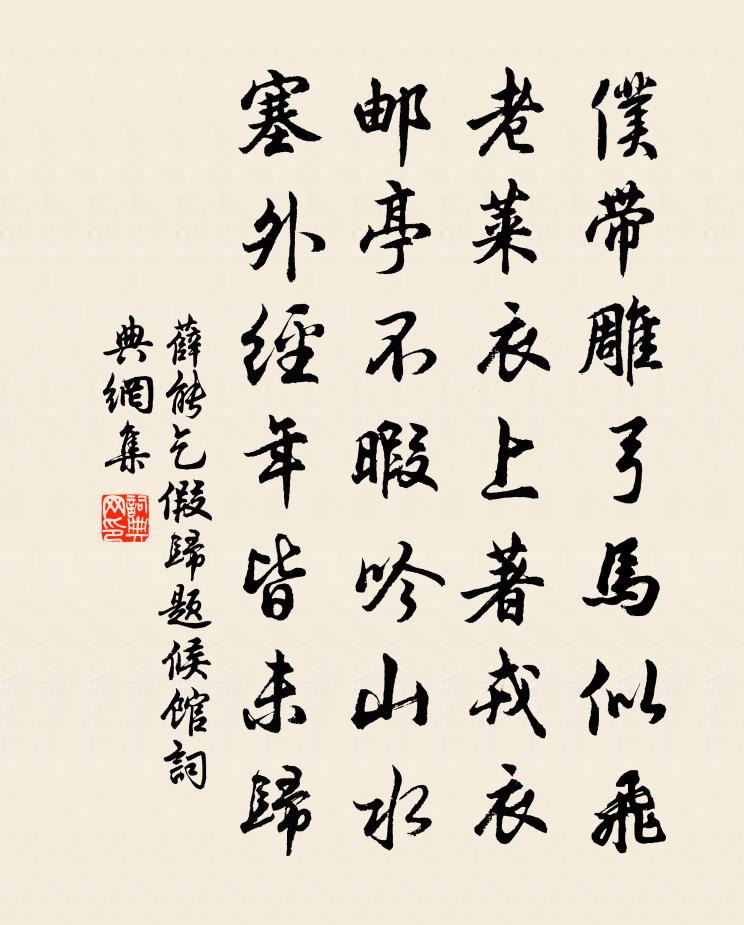 僕带雕弓馬似飛
老莱衣上著戎衣
邮亭不暇吟山水
塞外經年皆未歸
薛能乞假歸题候馆詞
典網集
詞典网印